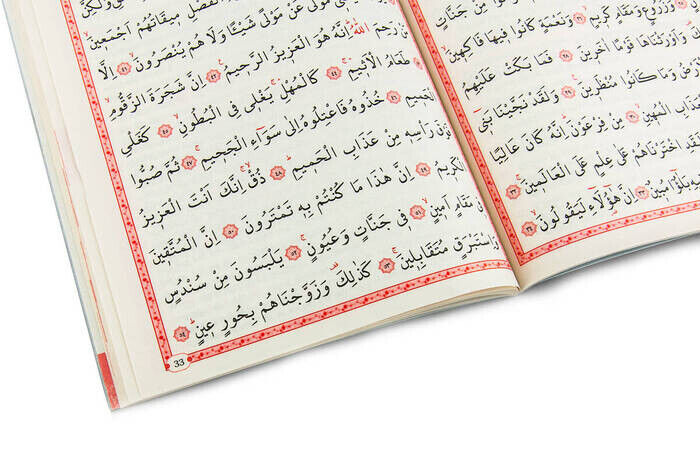 مِنْ جَنَّاتٍ
وَزُرُوعٍ وَمَقَامٍ كَرِيمٍ ٢٦ وَنَعْمَةٍ كَانُوا فِيهَا فَاكِهِينَ
وَاَوْرَثْنَاهَا قَوْمًا اٰخَرِينَ ٢٨ فَمَا بَكَتْ عَلَيْهِمُ
وَمَا كَانُوا مُنْظَرِينَ ٢٩ وَلَقَدْ نَجَّيْنَا بَنِٓى
الْمُهِينِ ٣٠ مِنْ فِرْعَوْنَ اِنَّهُ كَانَ عَالِيًا
اخْتَرْنَاهُمْ عَلٰى عِلْمٍ عَلَى الْعَالَمِينَ ٣٢
مُبِينٌ ٣٣ اِنَّ هٰٓؤُلَٓاءِ لَيَقُولُونَ ٣٤
الْفَصْلِ مِيقَاتُهُمْ اَجْمَعِينَ
مَوْلًى عَنْ مَوْلًى شَيْئًا وَلَا هُمْ يُنْصَرُونَ ٤١ اِلَّا
رَحِمَ اللّٰهُ اِنَّهُ هُوَ الْعَزِيزُ الرَّحِيمُ ٤٢ اِنَّ شَجَرَةَ الزَّقُّومِ
طَعَامُ الْاَثِيمِ ٤٤ كَالْمُهْلِ يَغْلِى فِى الْبُطُونِ ٤٥ كَغَلْىِ
الْحَمِيمِ ٤٦ خُذُوهُ فَاعْتِلُوهُ اِلٰى سَوَٓاءِ الْجَحِيمِ ٤٧ ثُمَّ صُبُّوا
رَاْسِهِ مِنْ عَذَابِ الْحَمِيمِ ذُقْ اِنَّكَ اَنْتَ الْعَزِيزُ
الْكَرِيمُ ٤٩ اِنَّ هٰذَا مَا كُنْتُمْ بِهِ تَمْتَرُونَ ٥٠ اِنَّ الْمُتَّقِينَ
مَقَامٍ اَمِينٍ ٥١ فِى جَنَّاتٍ وَعُيُونٍ ٥٢ يَلْبَسُونَ مِنْ سُنْدُسٍ
وَاِسْتَبْرَقٍ مُتَقَابِلِينَ ٥٣ كَذٰلِكَ وَزَوَّجْنَاهُمْ بِحُورٍ عِينٍ ٥٤
33